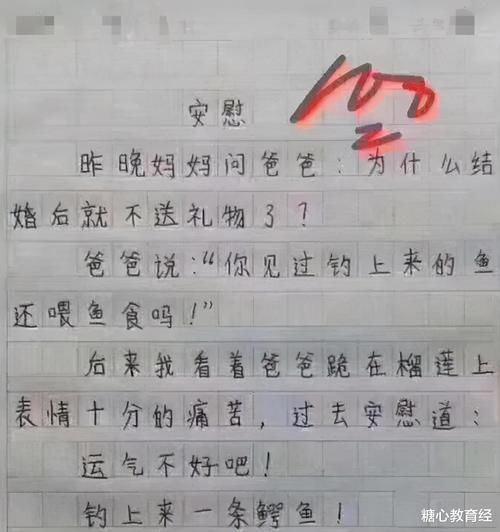 100
安慰
昨晚妈妈问爸爸：为什么结
婚后就不送礼物了？
爸爸说：“你见过钓上来的鱼
还喂鱼食吗！”
后来我看着爸爸跪在榴莲上
表情十分的痛苦，过去安慰道：
运气不好吧！
钓上来一条鳄鱼！
糖心教育经